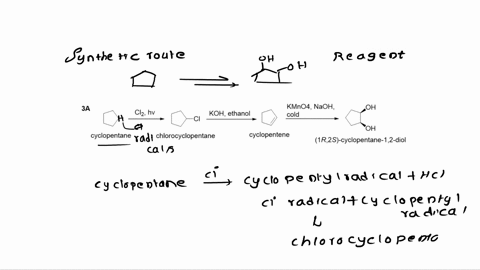 Synthetic route
Reagent
OH
OH
3A
H
Cl2, hv
Cl
KOH, ethanol
KMnO4, NaOH,
cold
OH
OH
cyclopentane
radi
cals
chlorocyclopentane
cyclopentene
(1R,2S)-cyclopentane-1,2-diol
cyclopentane Cl cyclopentyl radical + HCl
Cl radical + cyclopentyl
radical
chlorocyclopenta